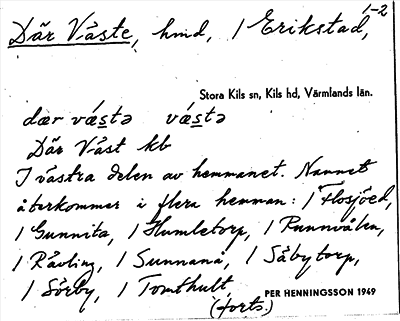 Där Väste, hmd, / Erikstad, 1-2
Stora Kils sn, Kils hd, Värmlands län.
dær vǽstə vǽstə
Där Väst kb
I västra delen av hemmanet. Namnet
återkommer i flera hemman: / Flosjöed,
/ Gunnita, / Humletorp, / Runnvålen,
/ Råvling, / Sunnanå, / Såbytorp,
/ Sörby, / Tomthult
(forts.)
PER HENNINGSSON 1949